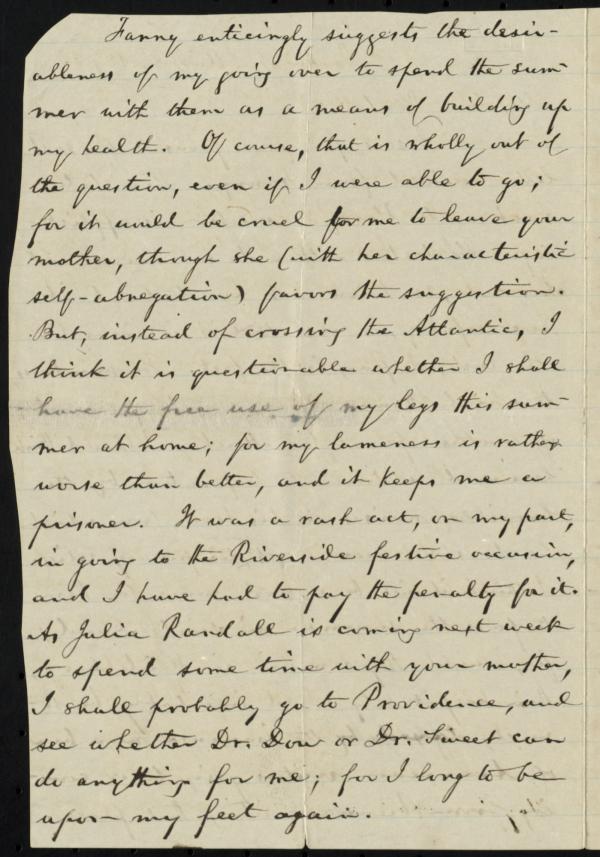 Fanny enticingly suggests the desir-
ableness of my going over to spend the sum-
mer with them as a means of building up
my health. Of course, that is wholly out of
the question, even if I were able to go;
for it would be cruel for me to leave your
mother, though she (with her characteristic
self-abnegation) favors the suggestion.
But, instead of crossing the Atlantic, I
think it is questionable whether I shall
have the free use of my legs this sum-
mer at home; for my lameness is rather
worse than better, and it keeps me a
prisoner. It was a rash act, on my part,
in going to the Riverside festive occasion,
and I have had to pay the penalty for it.
As Julia Randall is coming next week
to spend some time with your mother,
I shall probably go to Providence, and
see whether Dr. Dow or Dr. Sweet can
do anything for me; for I long to be
upon my feet again.